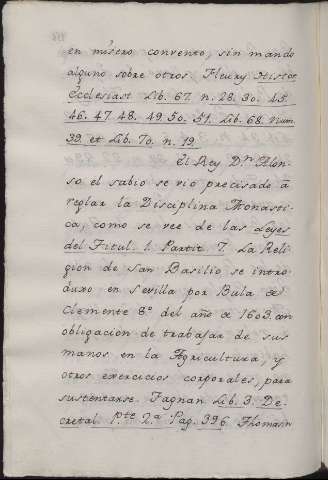 en nũstro convento, sin mando
alguno sobre otros Fleury Histor
Ecclesiast Lib. 67. n. 28. 30. 45.
46. 47. 48. 49. 50. 51. Lib. 68. Num.
39. et Lib. 70. n. 19.
El Rey D.n Alon-
so el sabio se vio precisado â
reglar la Disciplina Monasti-
ca, como se vee de las Leyes
del Titul. 1. Partit. 7. La Reli-
gion de San Basilio se intro-
duxo en Sevilla por Bula de
Clemente 8.o del año de 1603. con
obligacion de trabajar de sus
manos en la Agricultura, y
otros exercicios corporales, para
sustentarse. Fagnan Lib. 3. De-
cretal. P.te 2.a Pag. 396. Thomasin